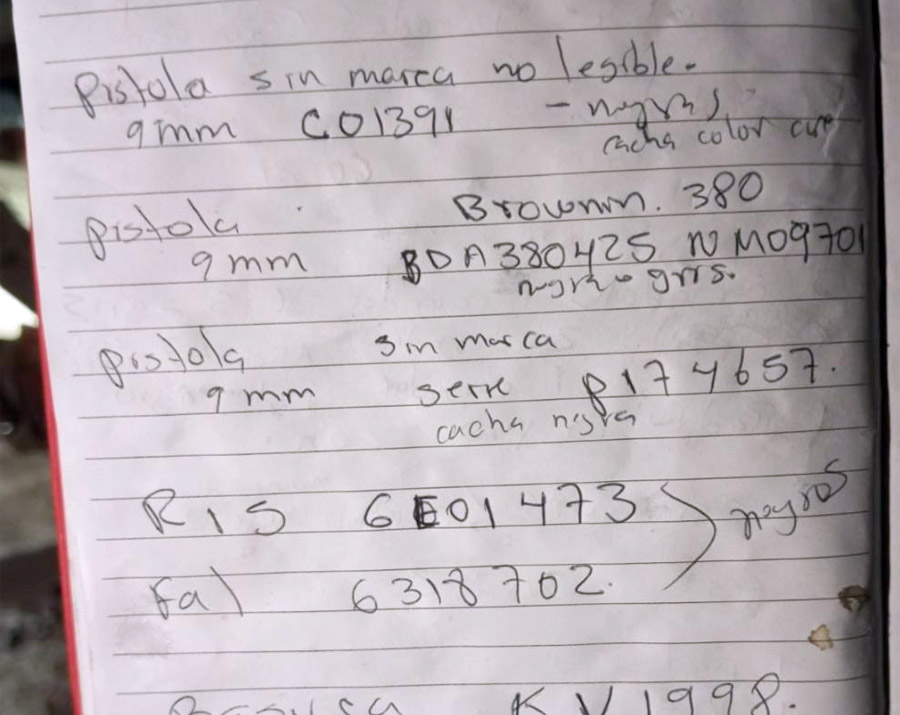 Pistola sin marca no legible.
9mm CO1391 - negras
cacha color
pistola Brownin. 380
9mm BDA380425 NM09701
negro gris.
pistola sin marca
9mm serre P174657.
cacha negra
RIS 6E01473 negros
fal 6318702.
KV1998.